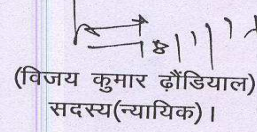 (विजय कुमार ढ़ौंडियाल)
सदस्य(न्यायिक) ।